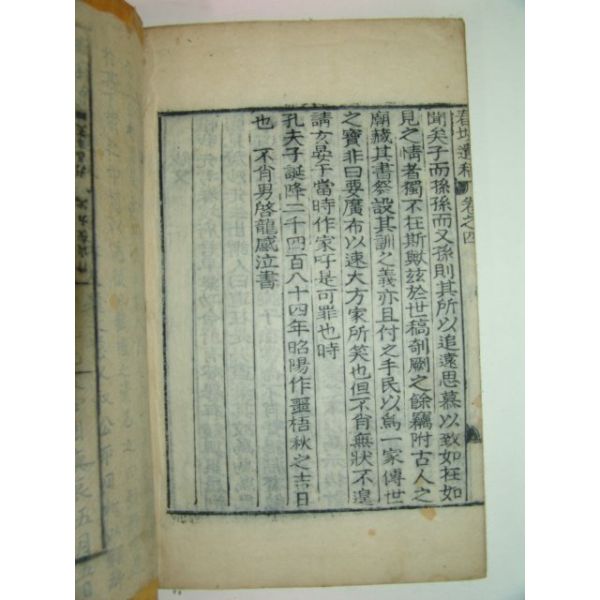 春坡遺稿 卷之四
聞矣子而孫孫而又孫則其所以追遠思慕以致如在如
見之情者獨不在斯歟玆於世稿剞劂之餘竊附古人之
廟藏其書祭設其訓之義亦且付之手民以爲一家傳世
之寶非曰要廣布以速大方家所笑也但不肖無狀不遑
請玄晏于當時作家吁是可罪也時
孔夫子誕降二千四百八十四年昭陽作噩梧秋之吉日
也 不肖男啓龍感泣書